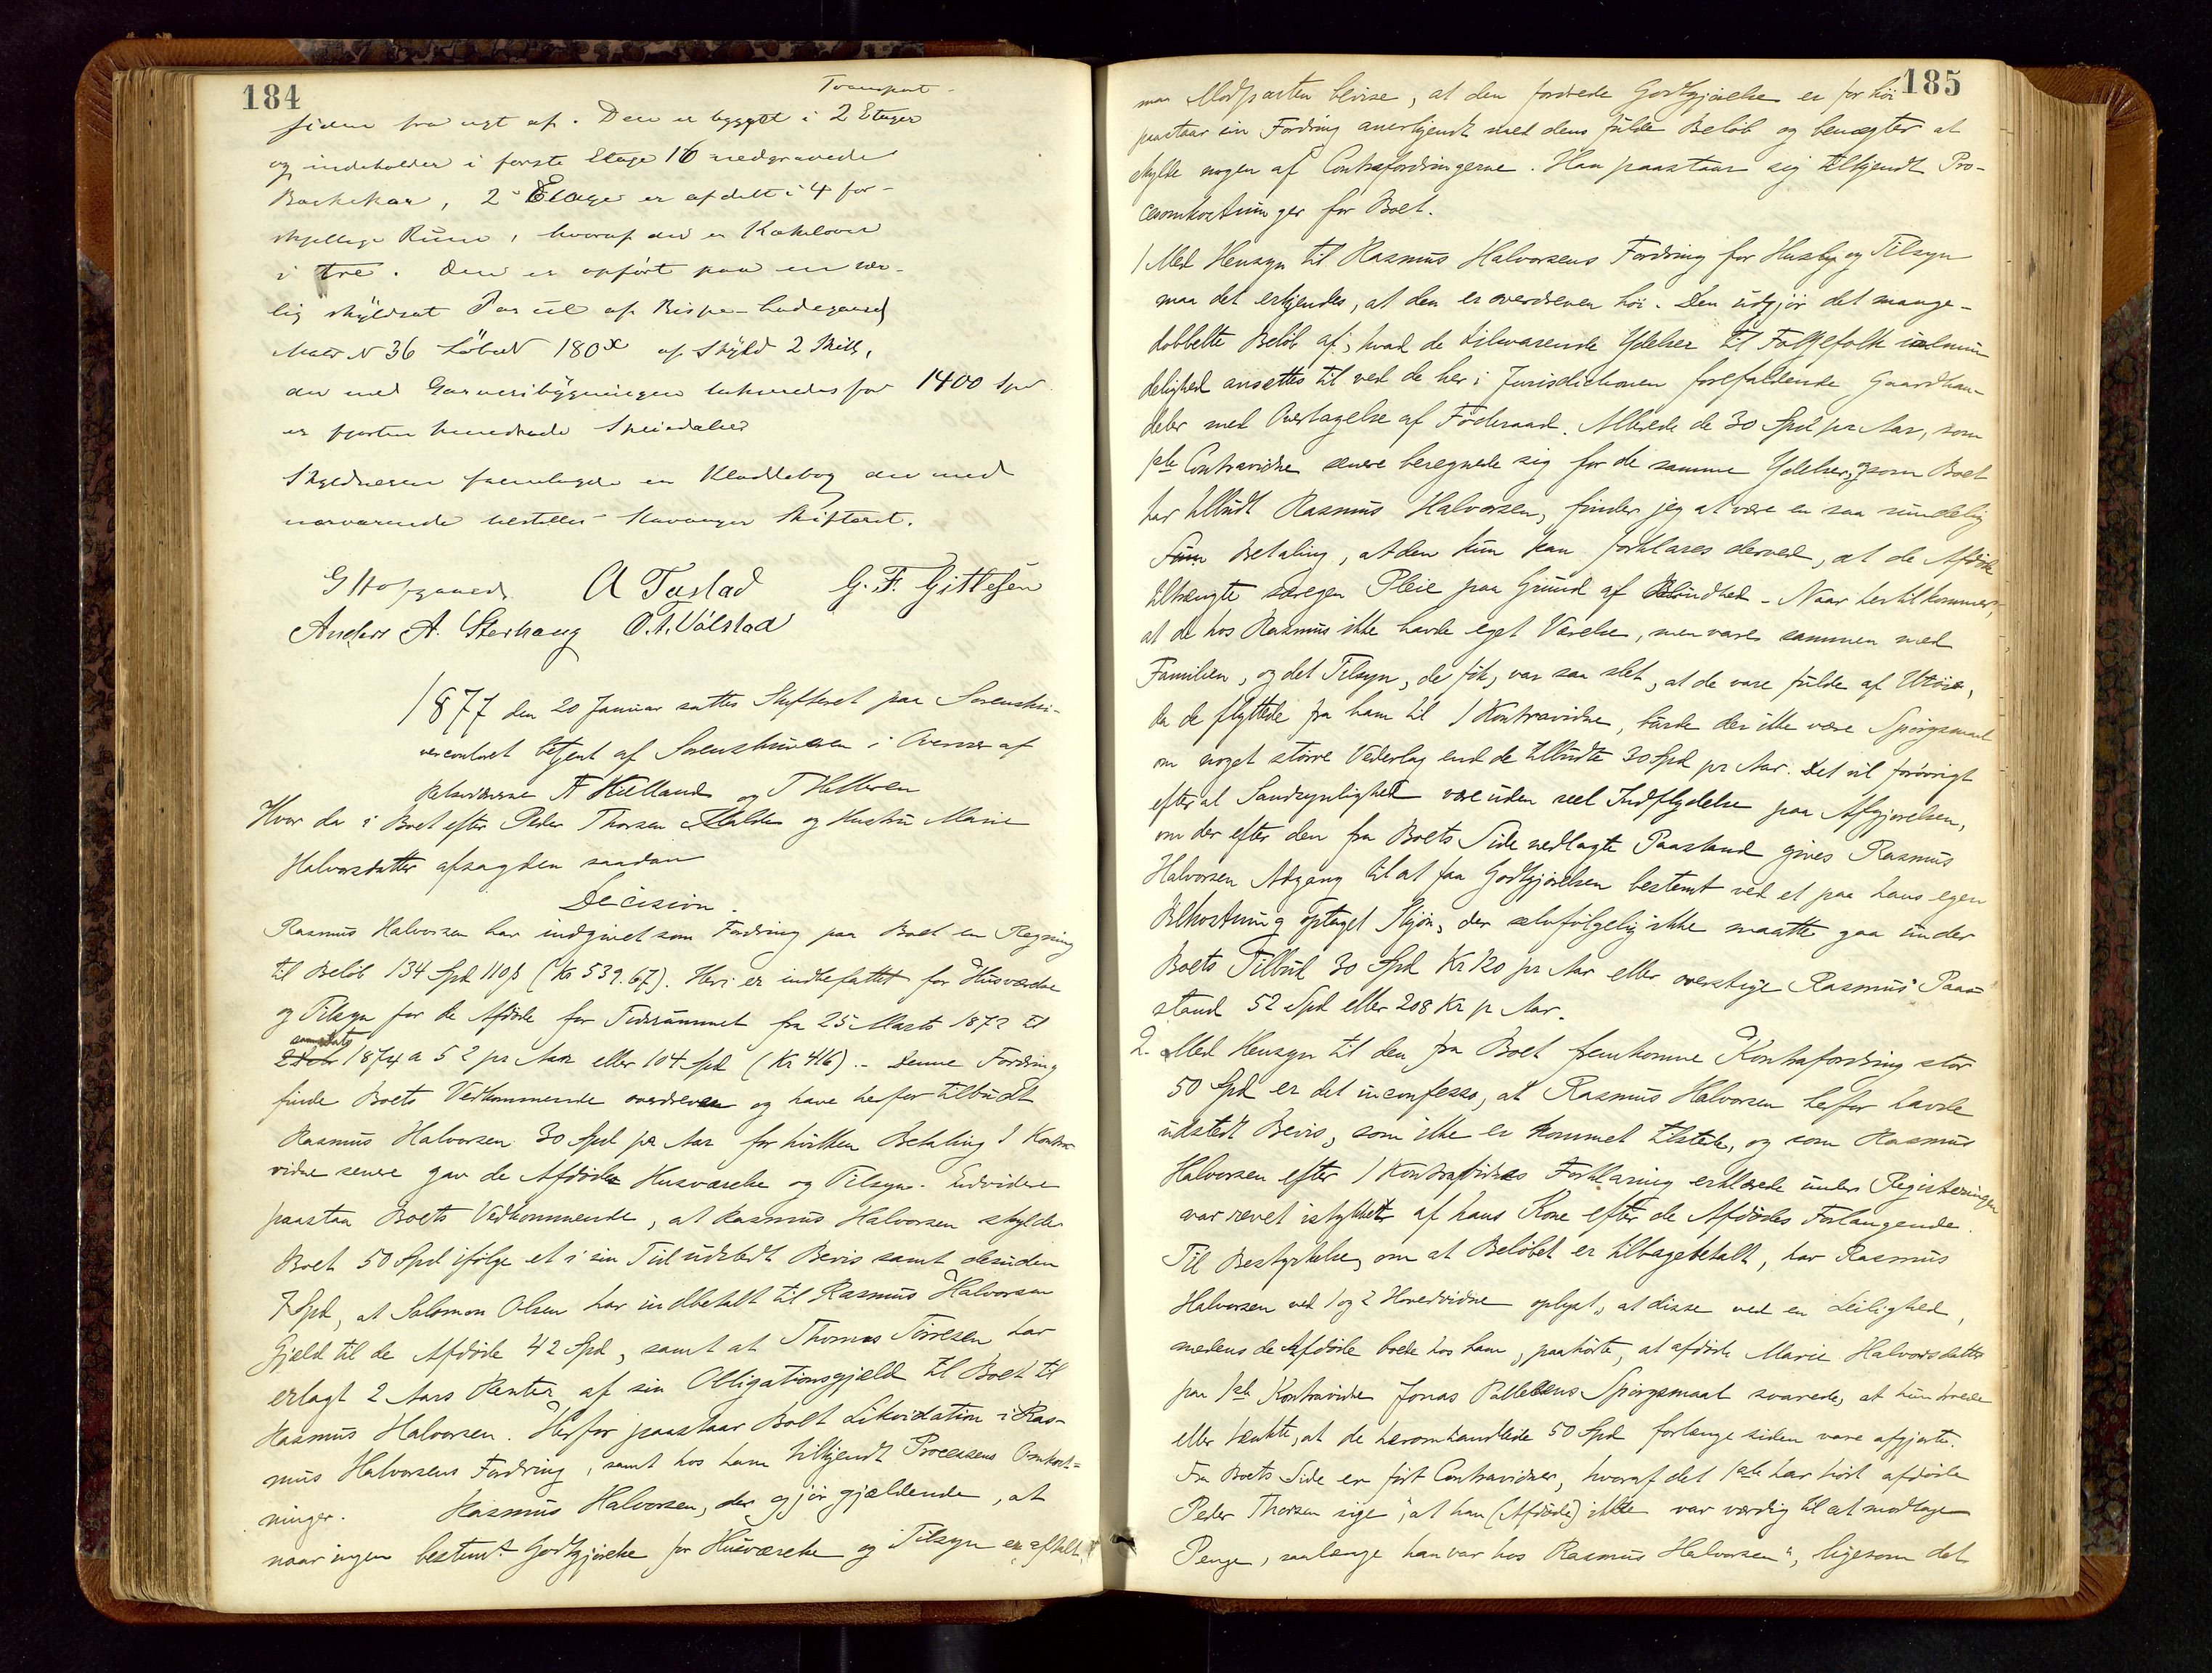 184
Transport
siden fra nyt af. Den er bygget i 2 Etager
og indeholder i første Etage 16 nedgravede
Barkekar, 2den Etage er afdelt i 4 for-
skjellige Rum, hvoraf der er Kakelovn
i tre. Den er opført paa en sær-
lig skyldsat Parcel af Bispe-Ladegaard
Matr N 36 Løbe N 180x af Skyld 2 Skill,
der med Garveribygningen taxeredes for 1400 Spd
er fjorten hundrede Speciedaler
Skyldneren fremlagde en Kladdebog der med
nærværende tilstilles Stavanger Skifteret.
G Hofgaard A Tastad G. F. Gittlesen
Anders A. Storhaug O. T. Volstad
1877 den 20 Januar sattes Skifteret paa Sorenskri-
vercontoret betjent af Sorenskriveren i Overvær af
Retsvidnerne A Kielland og T Helliesen
Hvor da i Boet efter Peder Thorsen Malde og Hustru Marie
Halvorsdatter afsagden saadan
Decision.
Rasmus Halvorsen har indgivet som Fordring paa Boet en Regning
til Beløb 134 Spd 110 s (Kr 539.67). Heri er indbefattet for Husværelse
og Tilsyn for de Afdøde for Tidsrummet fra 25 Marts 1872 til
samedato
1874 a 52 pr Aar eller 104 Spd (Kr 416). - Denne Fordring
finde Boets Vedkommende overdreven og have herfor tilbudt
Rasmus Halvorsen 30 Spd pr Aar for hvilken Betaling 1 Kontra-
vidne senere gav de Afdøde Husværelse og Tilsyn. Endvidere
paastaa Boets Vedkommende, at Rasmus Halvorsen skylder
Boet 50 Spd ifølge et i sin Tid udstedt Bevis samt desuden
7 Spd, at Salomon Olsen har indbetalt til Rasmus Halvorsen
Gjæld til de Afdøde 42 Spd, samt at Thomas Tørresen har
erlagt 2 Aars Renter af sin Obligationsgjæld til Boet til
Rasmus Halvorsen. Herfor paastaar Boet Likvidation i Ras-
mus Halvorsens Fordring, samt hos ham tilkjendt Processens Omkost-
ninger. Rasmus Halvorsen, der gjør gjældende, at
naar ingen bestemt Godtgjørelse for Husværelse og Tilsyn er aftalt,
185
maa Modparten bevise, at den fordrede Godtgjørelse er for høi
paastaar sin Fordring anerkjendt med dens fulde Beløb og benægter at
skylde nogen af Contrafordringerne. Han paastaar sig tilkjendt Pro-
cesomkostninger for Boet.
1 Med Hensyn til Rasmus Halvorsens Fordring for Husly og Tilsyn
maa det erkjendes, at den er overdreven høi. Den udgjør det mange-
dobbelte Beløb af, hvad de tilsvarende Ydelser til Følgefolk ialmin
delighed ansettes til ved de her i Jurisdictionen forefaldende Gaardhan-
deler med Overtagelse af Føderaad. Allerede de 30 Spd pr Aar, som
1ste Contravidne senere beregnede sig for de samme Ydelser, og som Boet
har tilbudt Rasmus Halvorsen, finder jeg at være en saa rundelig
Betaling, at den kun kan forklares derved, at de Afdøde
tiltrængte særegen Pleie paa Grund af Blindhed. Naar hertil kommer,
at de hos Rasmus ikke havde eget Værelse, men vare sammen med
Familien, og det Tilsyn, de fik, var saa slet, at de vare fulde af Utøi,
da de flyttede fra ham til 1 Kontravidne, burde der ikke være Spørgsmaal
om noget større Vederlag end de tilbudte 30 Spd pr Aar. Det vil forøvrigt
efter al Sandsynlighed være uden reel Indflydelse paa Afgjørelsen,
om der efter den fra Boets Side nedlagte Paastand gives Rasmus
Halvorsen Adgang til at faa Godtgjørelsen bestemt ved et paa hans egen
Bekostning optaget Skjøn, der selvfølgelig ikke maatte gaa under
Boets Tilbud 30 Spd Kr 120 pr Aar eller overstige Rasmus' Paa-
stand 52 Spd eller 208 Kr pr Aar.
2. Med Hensyn til den fra Boet fremkomne Kontrafordring stor
50 Spd er det in confesso, at Rasmus Halvorsen herfor havde
udstedt Bevis, som ikke er kommet tilstede, og som Rasmus
Halvorsen efter 1 Kontravidnes Forklaring erklærede under Registeringen
var revet istykker af hans Kone efter de Afdødes Forlangende.
Til Bestyrkelse om at Beløbet er tilbagebetalt, har Rasmus
Halvorsen ved 1 og 2 Hovedvidne oplyst, at disse ved en Leilighed,
medens de Afdøde boede hos ham, paahørte, at afdøde Marie Halvorsdatter
paa 1ste Kontravidne Jonas Pallesens Spørgsmaal svarede, at hun troede
eller tænkte, at de heromhandlede 50 Spd forlænge siden vare afgjorte.
Fra Boets Side er ført Contravidner, hvoraf det 1ste har hørt afdøde
Peder Thorsen sige, "at han (Afdøde) ikke var værdig til at modtage
Penge, saalænge han var hos Rasmus Halvorsen", ligesom det